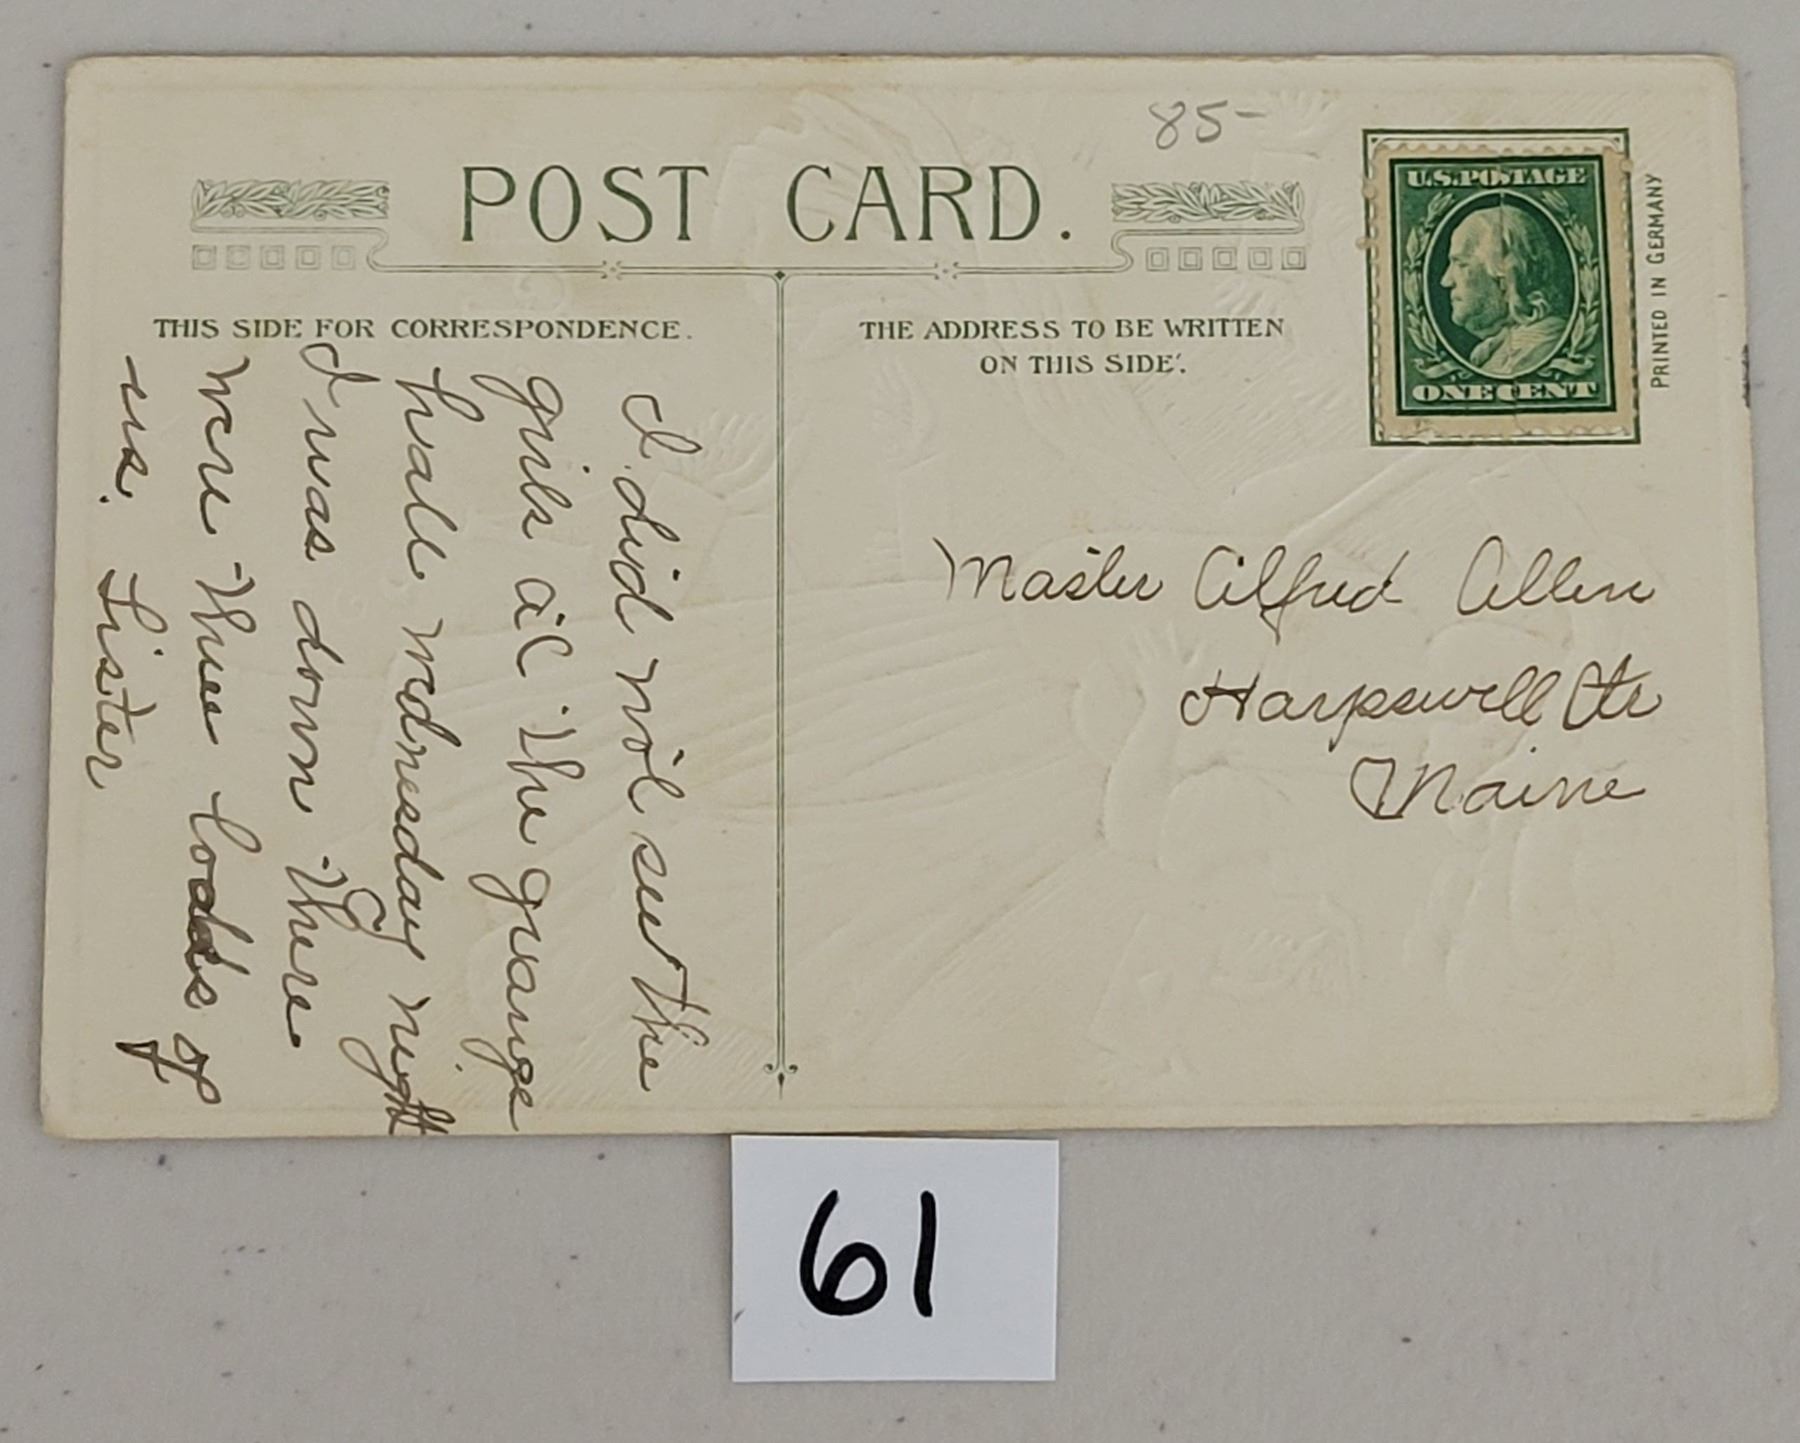 85-
POST CARD.
U.S. POSTAGE
ONE CENT
PRINTED IN GERMANY
THIS SIDE FOR CORRESPONDENCE.
I did not see the
girls at the grange
hall Wednesday night
I was down there
were three loads of
us. Sister
THE ADDRESS TO BE WRITTEN
ON THIS SIDE.
Master Alfred Allen
Harpswell Ctr
Maine
61